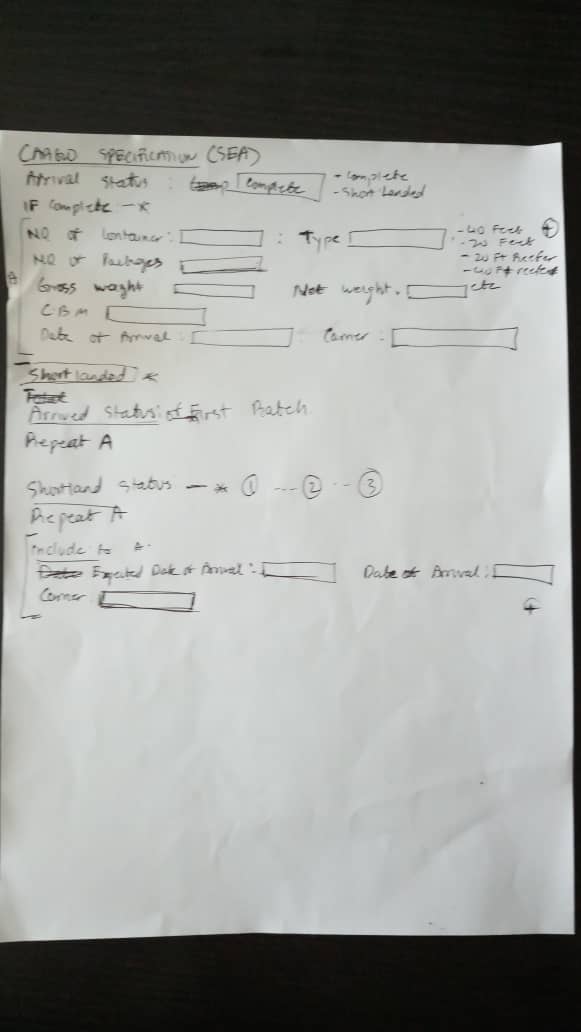 CARGO SPECIFICATION (SEA)
Arrival Status : Complete - Complete
- Short Landed
IF Complete - *
NO of Container : : Type - 40 Feet +
- 20 Feet
NO of Packages - 20 Ft Reefer
- 40 Ft reefer
A Gross waght Net weight. etc
CBM
Date of Arrival : Carrier :
Short landed *
Arrived Status of First Batch
Repeat A
Shortland Status - * 1 --- 2 -- 3
Repeat A
include to A.
Expected Date of Arrival : Date of Arrival :
Carrier +